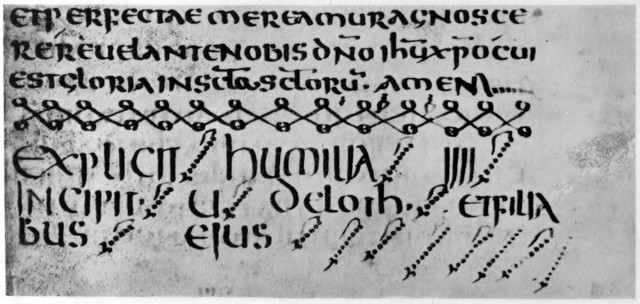 et perfectae mereamur agnosce
re revelante nobis dno ihu xpo cui
est gloria in scta sctoru. amen
explicit humilia IIII
incipit. u de loth. et filia
bus ejus